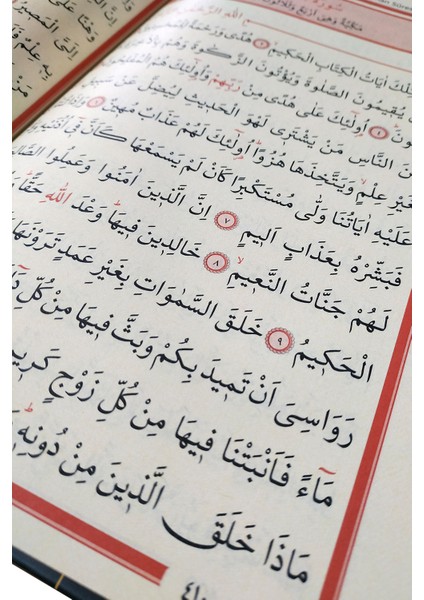 سُورَةُ
مَكِّيَّةٌ وَهِىَ اَرْبَعٌ وَثَلَاثُونَ
اللّٰهِ الرَّحْمٰنِ
تِلْكَ اٰيَاتُ الْكِتَابِ الْحَكٖيمِ ۝٢ هُدًى وَرَحْمَةً
يُقٖيمُونَ الصَّلٰوةَ وَيُؤْتُونَ الزَّكٰوةَ وَهُمْ
۝٤ اُولٰٓئِكَ عَلٰى هُدًى مِنْ رَبِّهِمْ وَاُولٰٓئِكَ هُمُ الْمُفْلِحُونَ
النَّاسِ مَنْ يَشْتَرٖى لَهْوَ الْحَدٖيثِ لِيُضِلَّ عَنْ
عِلْمٍ وَيَتَّخِذَهَا هُزُوًا اُولٰٓئِكَ لَهُمْ عَذَابٌ مُهٖينٌ ۝٦ وَاِذَا
عَلَيْهِ اٰيَاتُنَا وَلّٰى مُسْتَكْبِرًا كَاَنْ لَمْ يَسْمَعْهَا كَاَنَّ فٖٓى اُذُنَيْهِ
فَبَشِّرْهُ بِعَذَابٍ اَلٖيمٍ ۝٧ اِنَّ الَّذٖينَ اٰمَنُوا وَعَمِلُوا
لَهُمْ جَنَّاتُ النَّعٖيمِ ۝٨ خَالِدٖينَ فٖيهَا وَعْدَ اللّٰهِ حَقًّا
الْحَكٖيمُ ۝٩ خَلَقَ السَّمٰوَاتِ بِغَيْرِ عَمَدٍ تَرَوْنَهَا
رَوَاسِىَ اَنْ تَمٖيدَ بِكُمْ وَبَثَّ فٖيهَا مِنْ كُلِّ
مَٓاءً فَاَنْبَتْنَا فٖيهَا مِنْ كُلِّ زَوْجٍ كَرٖيمٍ
مَاذَا خَلَقَ الَّذٖينَ مِنْ دُونِهٖ